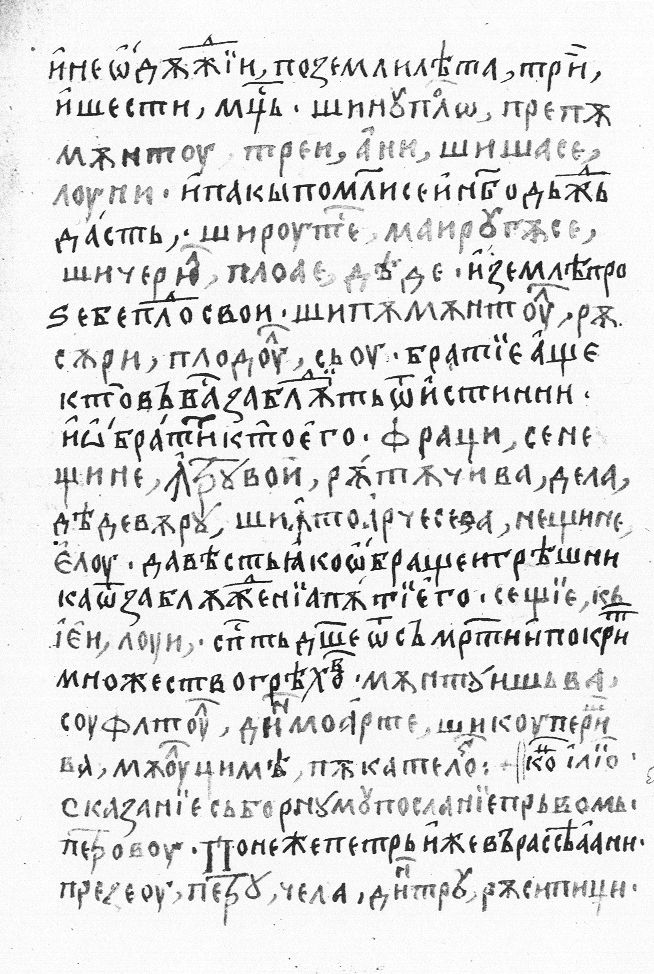 и҆не ѡ҆́дѫжⷣїи, поземлилѣта, трїи,
и҆шести, мцⷭ҇ь · шинꙋплⷪѡ, препѫ
мѫнтоу треи, а҆ни, шишасе,
лоуни · и҆пакыпомл҃исеи҆нб҃одъжⷣь
дасть, · широуптⷭе, маирꙋгѫсе,
шичерю҆л, плоае, дѣде · и҆землѣпро
ѕебепло́ⷣсвои · шипѫмѫнтоуⷧ, рѫ
сѫри, плодоуⷧ, сьоу · братїе а҆ще
ктовъваⷭзаблѫⷣїть ѿи҆стинни ·
и҆ѡ҆братиⷮктое҆го · фраци, сене
щине, а҆рꙋвои, рѫтѫчива, дела,
дѣдевѫрꙋ, ши꙼ꙟтоа҆рчесева, нещине,
е҆лоу · давѣстьꙗкоѡ҆бращеигрѣшни
каѿзаблѫⷣженїапѫтїе҆го · сещїе, кь
їе҆и, лоуи, · сп҃тьдш҃еѿсъмр҃тиипокриⷮ
множествогрѣхоⷡ · мѫнтꙋишьва,
соуфлтоуⷧ, диⷩмоа҆рте, шикоупериⷮ
вѧ, мѫлоуцимѣ, пѫкателоⷬ : коⷩ ілїо ·
сказанїесьборнꙋмꙋпосланїепрьвомь ·
петровоу · Понежепетрьи҆жевърассѣа҆ани ·
презеоу, петрꙋ, чела, диⷩтрꙋ, рѫсипици ·